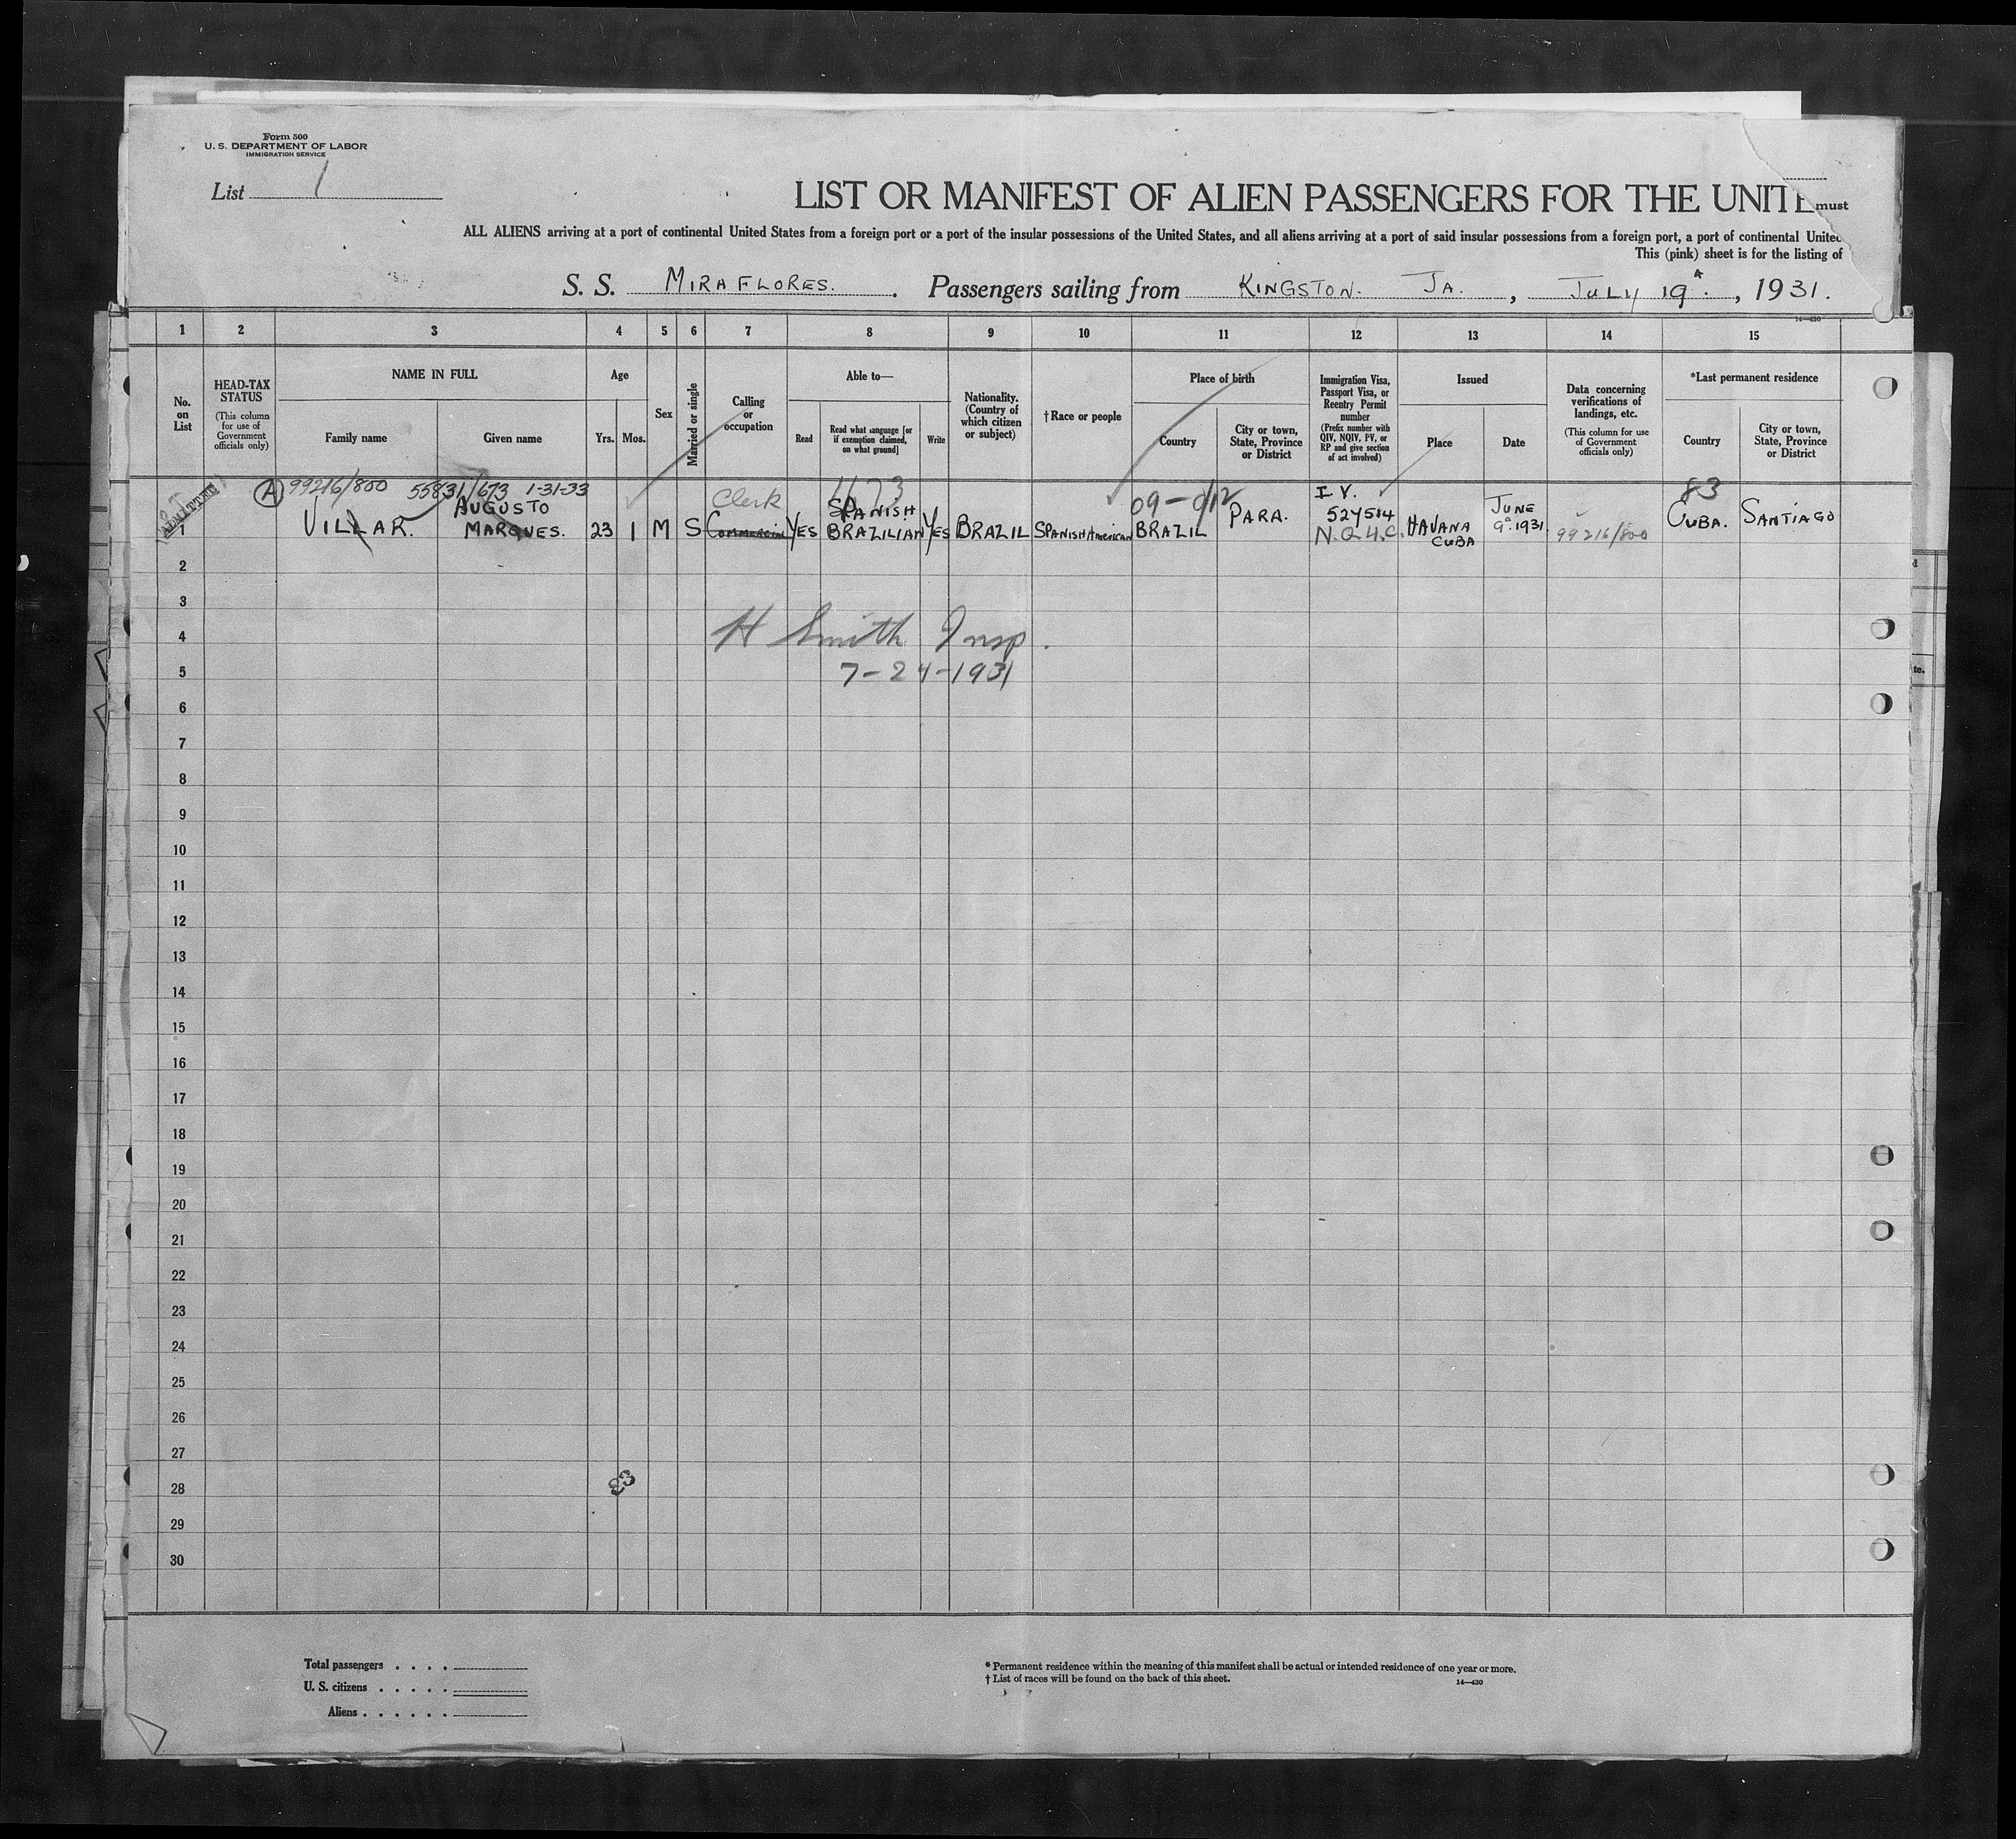 Form 500
U. S. DEPARTMENT OF LABOR
IMMIGRATION SERVICE
List 1
LIST OR MANIFEST OF ALIEN PASSENGERS FOR THE UNITE
must
ALL ALIENS arriving at a port of continental United States from a foreign port or a port of the insular possessions of the United States, and all aliens arriving at a port of said insular possessions from a foreign port, a port of continental United
This (pink) sheet is for the listing of
S. S. MIRAFLORES. Passengers sailing from KINGSTON. JA., JULY 19, 1931.
14—430
1 2 3 4 5 6 7 8 9 10 11 12 13 14 15
No. on List
HEAD-TAX STATUS
(This column for use of Government officials only)
NAME IN FULL
Family name
Given name
Age
Yrs. Mos.
Sex
Married or single
Calling or occupation
Able to—
Read
Read what language [or if exemption claimed, on what ground]
Write
Nationality. (Country of which citizen or subject)
†Race or people
Place of birth
Country
City or town, State, Province or District
Immigration Visa, Passport Visa, or Reentry Permit number
(Prefix number with QIV, NQIV, PV, or RP and give section of act involved)
Issued
Place
Date
Data concerning verifications of landings, etc.
(This column for use of Government officials only)
*Last permanent residence
Country
City or town, State, Province or District
ADMITTED
A 99216/800 55831/673 1-31-33
1 VILLAR. AUGUSTO MARQUES. 23 1 M S Clerk Commercial YES SPANISH BRAZILIAN YES BRAZIL SPANISH American 09-0/12 BRAZIL PARA. I V. 527514 N.Q.4.C. HAVANA CUBA JUNE 9 1931. 99216/800 83 CUBA. SANTIAGO
2
3
H Smith Insp.
4
7-24-1931
5
6
7
8
9
10
11
12
13
14
15
16
17
18
19
20
21
22
23
24
25
26
27
83
28
29
30
Total passengers . . . .
U. S. citizens . . . . .
Aliens . . . . . .
* Permanent residence within the meaning of this manifest shall be actual or intended residence of one year or more.
† List of races will be found on the back of this sheet.
14—430